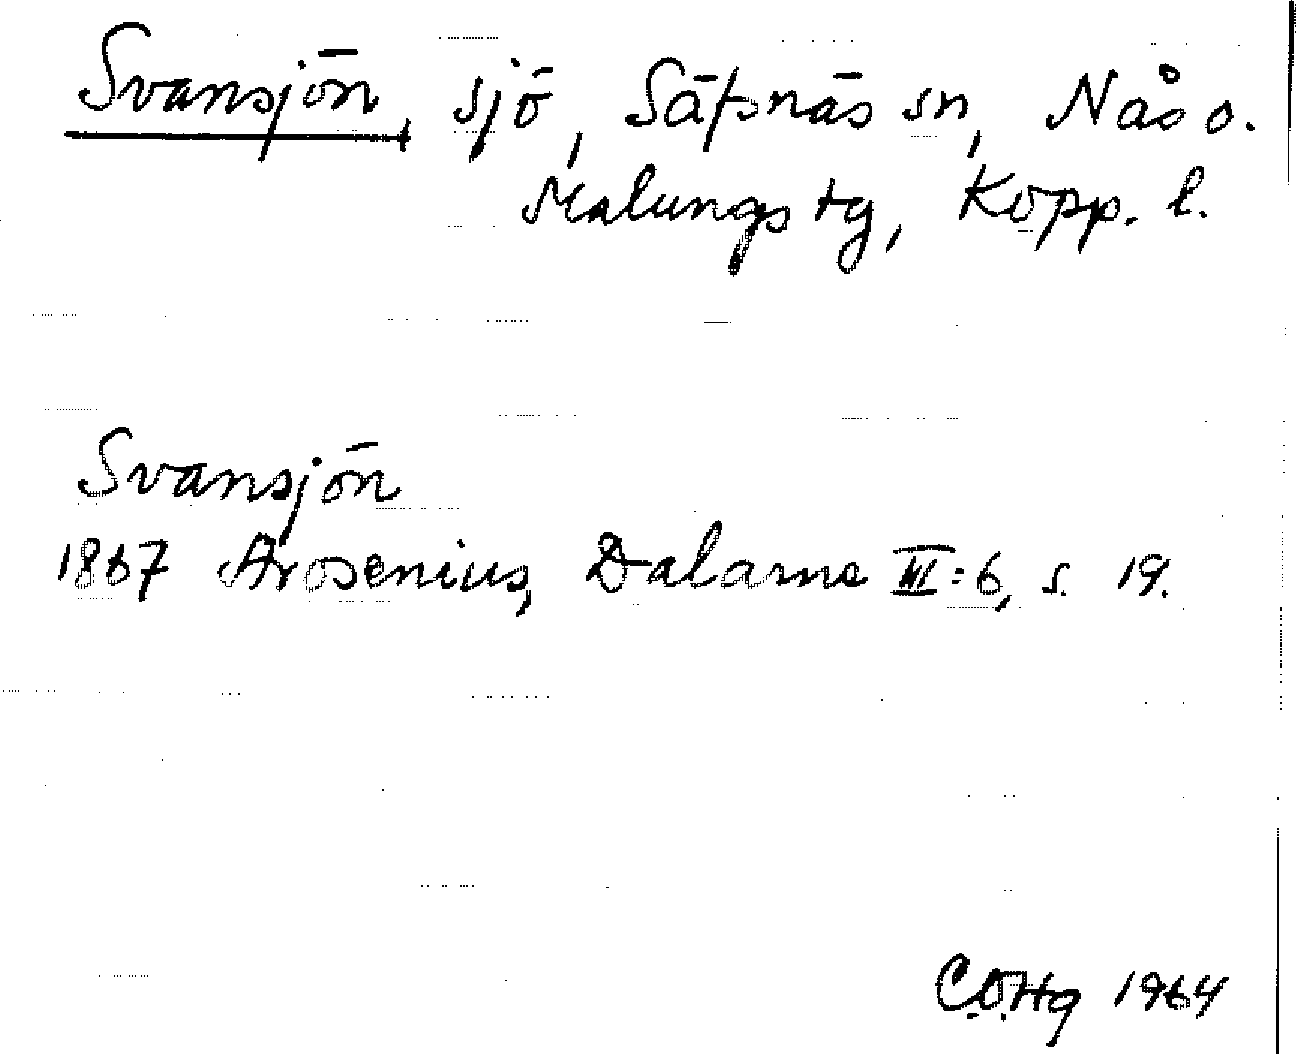 Svansjön, sjö, Säfsnäs sn, Nås o.
Malungs tg, Kopp. l.
Svansjön
1867 Arosenius, Dalarne III:6, s. 19.
C.O.Hg 1964